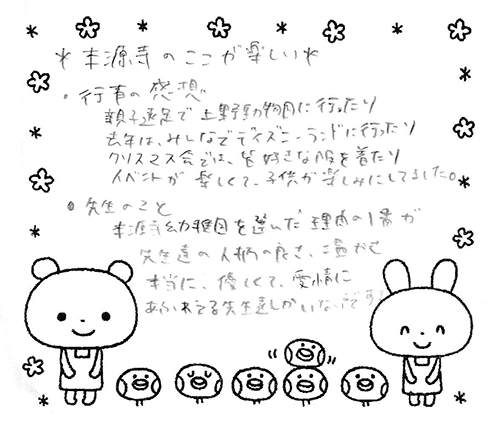 *本源寺のここが楽しい*
・行事の感想
親子遠足で上野動物園に行ったり
去年は、みんなでディズニーランドに行ったり
クリスマス会では、皆好きな服を着たり
イベントが楽しくて、子供が楽しみにしてました。
・先生のこと
本源寺幼稚園を選んだ理由の1番が
先生達の人柄の良さ、温かさ
本当に、優しくて、愛情に
あふれてる先生達しかいないです